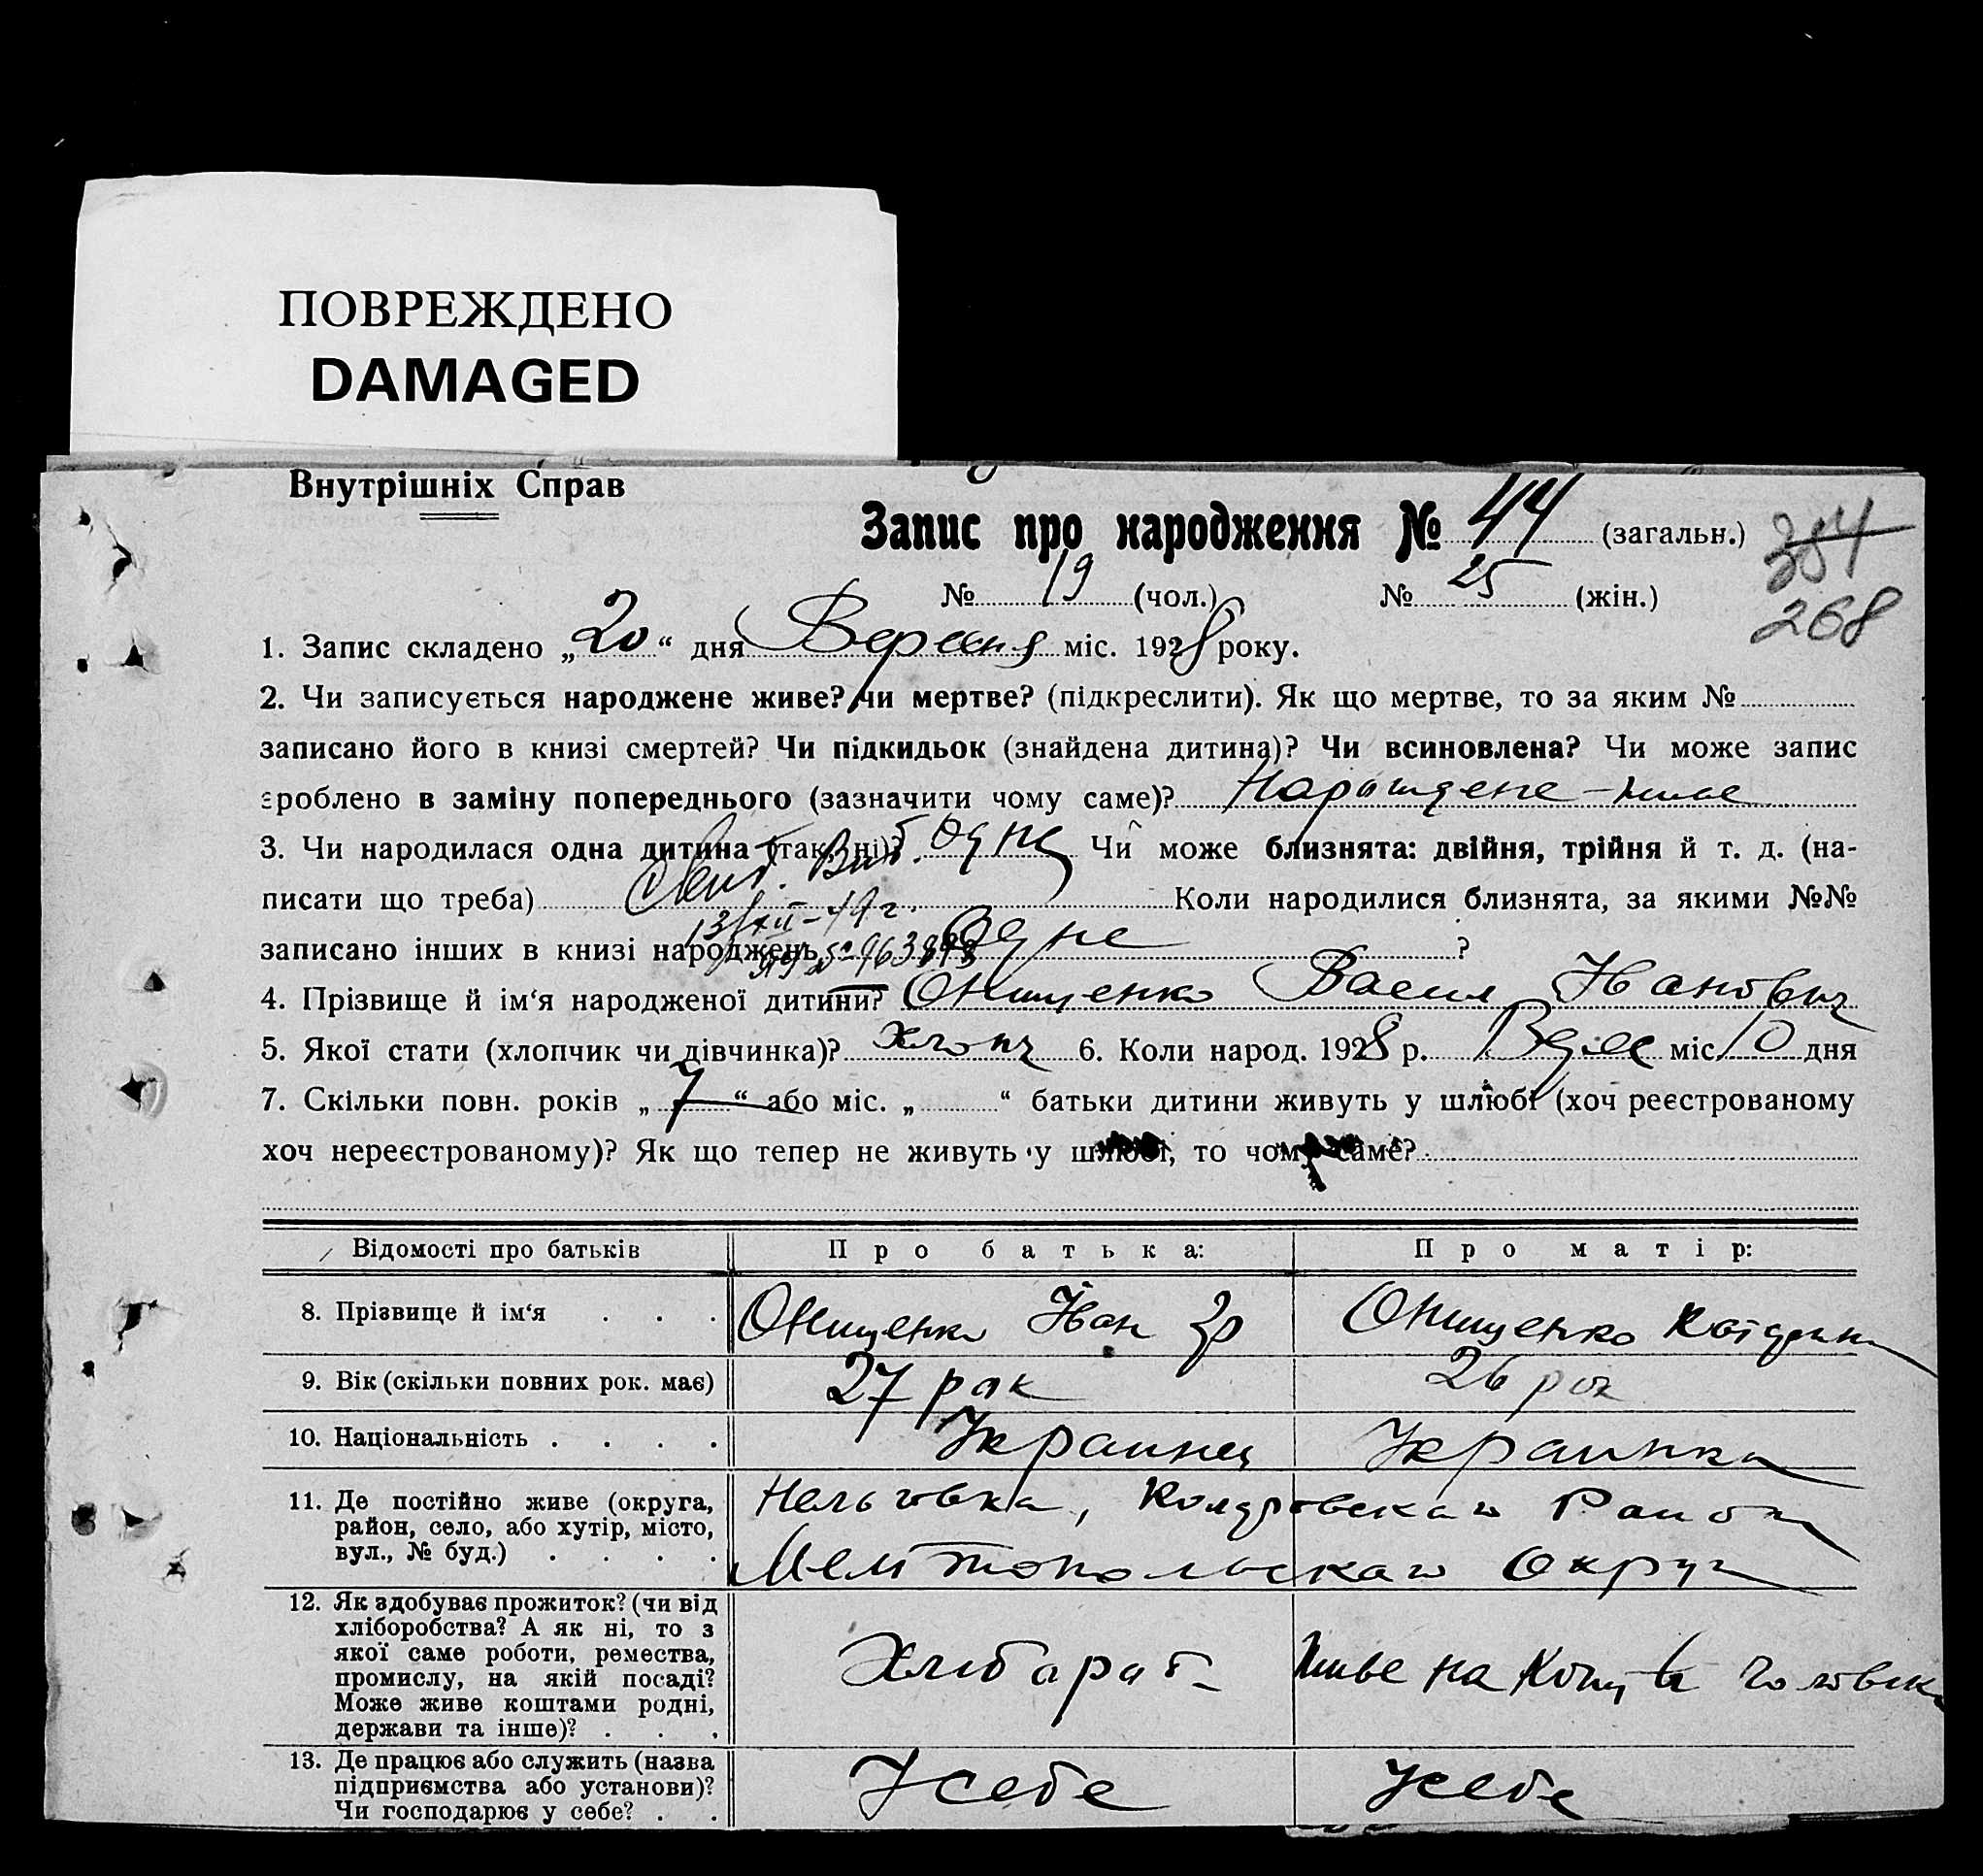 ПОВРЕЖДЕНО
DAMAGED
Внутрішніх Справ
Запис про народження № 44 (загальн.)
354
№ 19 (чол.) № 25 (жін.)
268
1. Запис складено „20“ дня Вересня міс. 1928 року.
2. Чи записується народжене живе? чи мертве? (підкреслити). Як що мертве, то за яким №
записано його в книзі смертей? Чи підкидьок (знайдена дитина)? Чи всиновлена? Чи може запис
зроблено в заміну попереднього (зазначити чому саме)?
3. Чи народилася одна дитина (так, ні)? одне Чи може близнята: двійня, трійня й т. д. (на-
писати що треба) Коли народилися близнята, за якими №№
записано інших в книзі народжень одне ?
4. Прізвище й ім‘я народженої дитини? Онищенко Васил Іванович
5. Якої стати (хлопчик чи дівчинка)? 6. Коли народ. 1928 р. міс. 10 дня
7. Скільки повн. років „7“ або міс. „ “ батьки дитини живуть у шлюбі (хоч реєстрованому
хоч нереєстрованому)? Як що тепер не живуть у шлюбі, то чому саме?
Відомості про батьків Про батька: Про матір:
8. Прізвище й ім‘я . . . Онищенко Іван Гр Онищенко
9. Вік (скільки повних рок. має) 27 рок 26 рок
10. Національність . . . . Украинец Украинка
11. Де постійно живе (округа,
район, село, або хутір, місто,
вул., № буд.) . . . .
12. Як здобуває прожиток? (чи від
хліборобства? А як ні, то з
якої саме роботи, ремества,
промислу, на якій посаді?
Може живе коштами родні,
держави та інше)? . . .
Хлібароб
13. Де працює або служить (назва
підприємства або установи)?
Чи господарює у себе? . .
У себе У себе